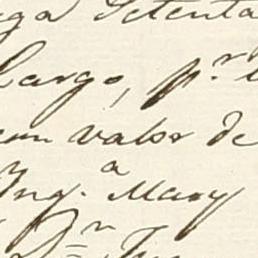 ga Setenta
Cargo, p.r
com valor de
Ing.a Mary
D.n